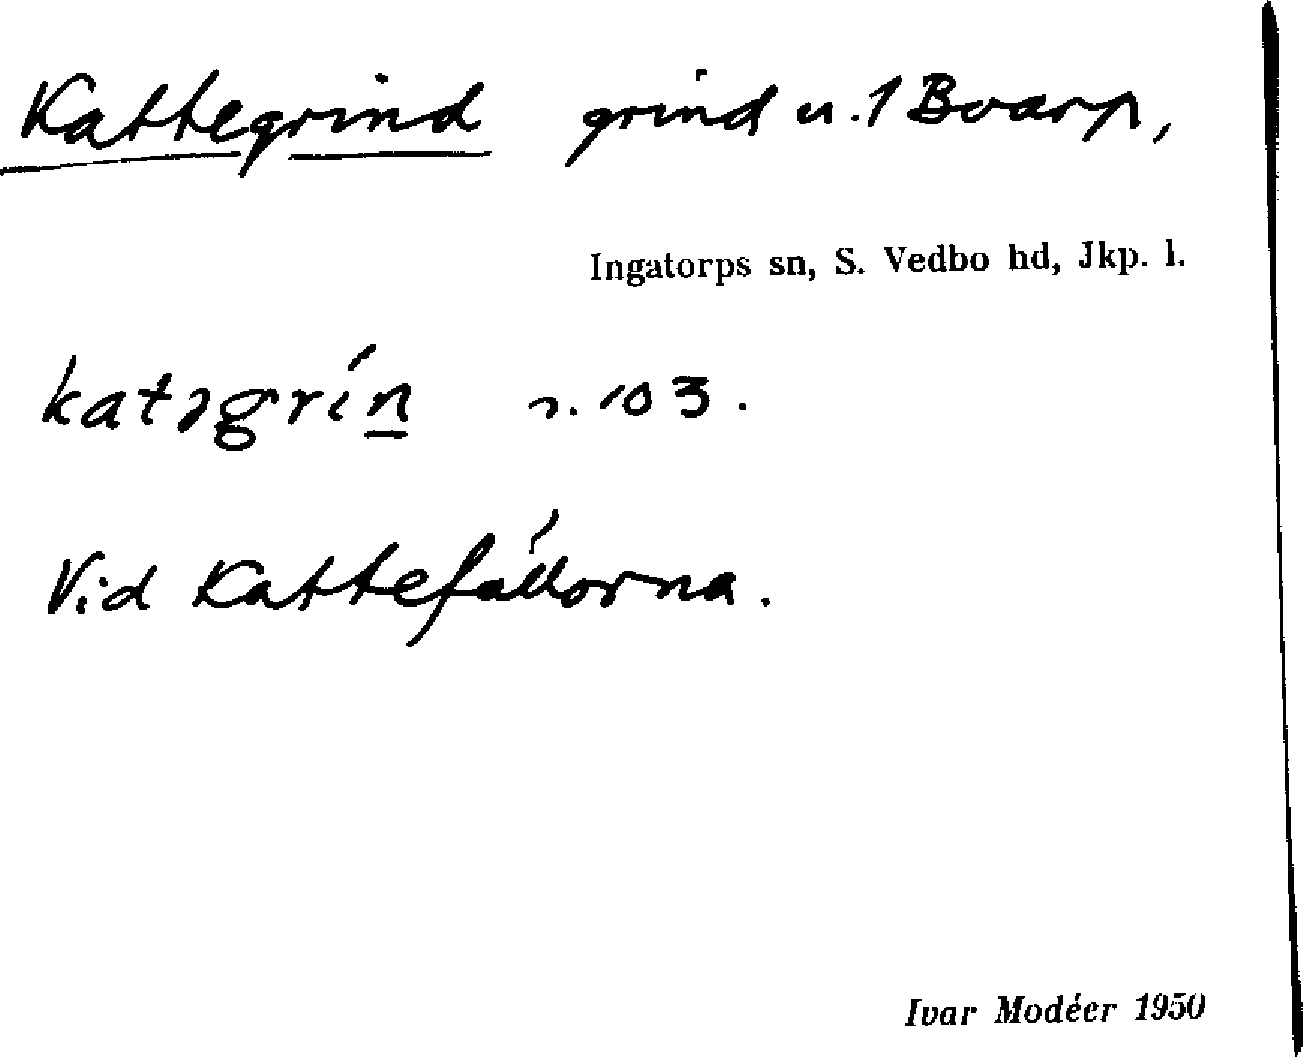 Kattegrind grind u. 1 Boarp,
Ingatorps sn, S. Vedbo hd, Jkp. l.
katəgrin n. 103.
Vid Kattefållorna.
Ivar Modéer 1950